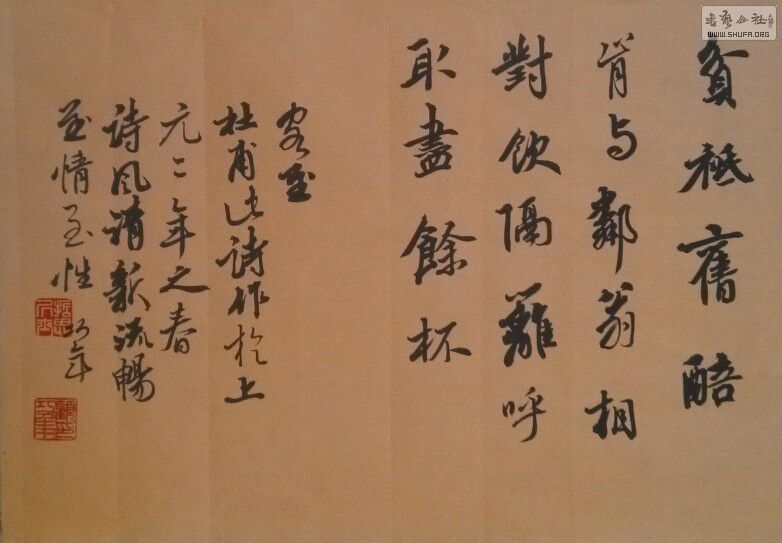 貧祗舊醅
肯与鄰翁相
對飲隔籬呼
取盡餘杯
客至
杜甫此詩作於上
元二年之春
詩風清新流暢
至情至性
書藝公社
WWW.SHUFA.ORG